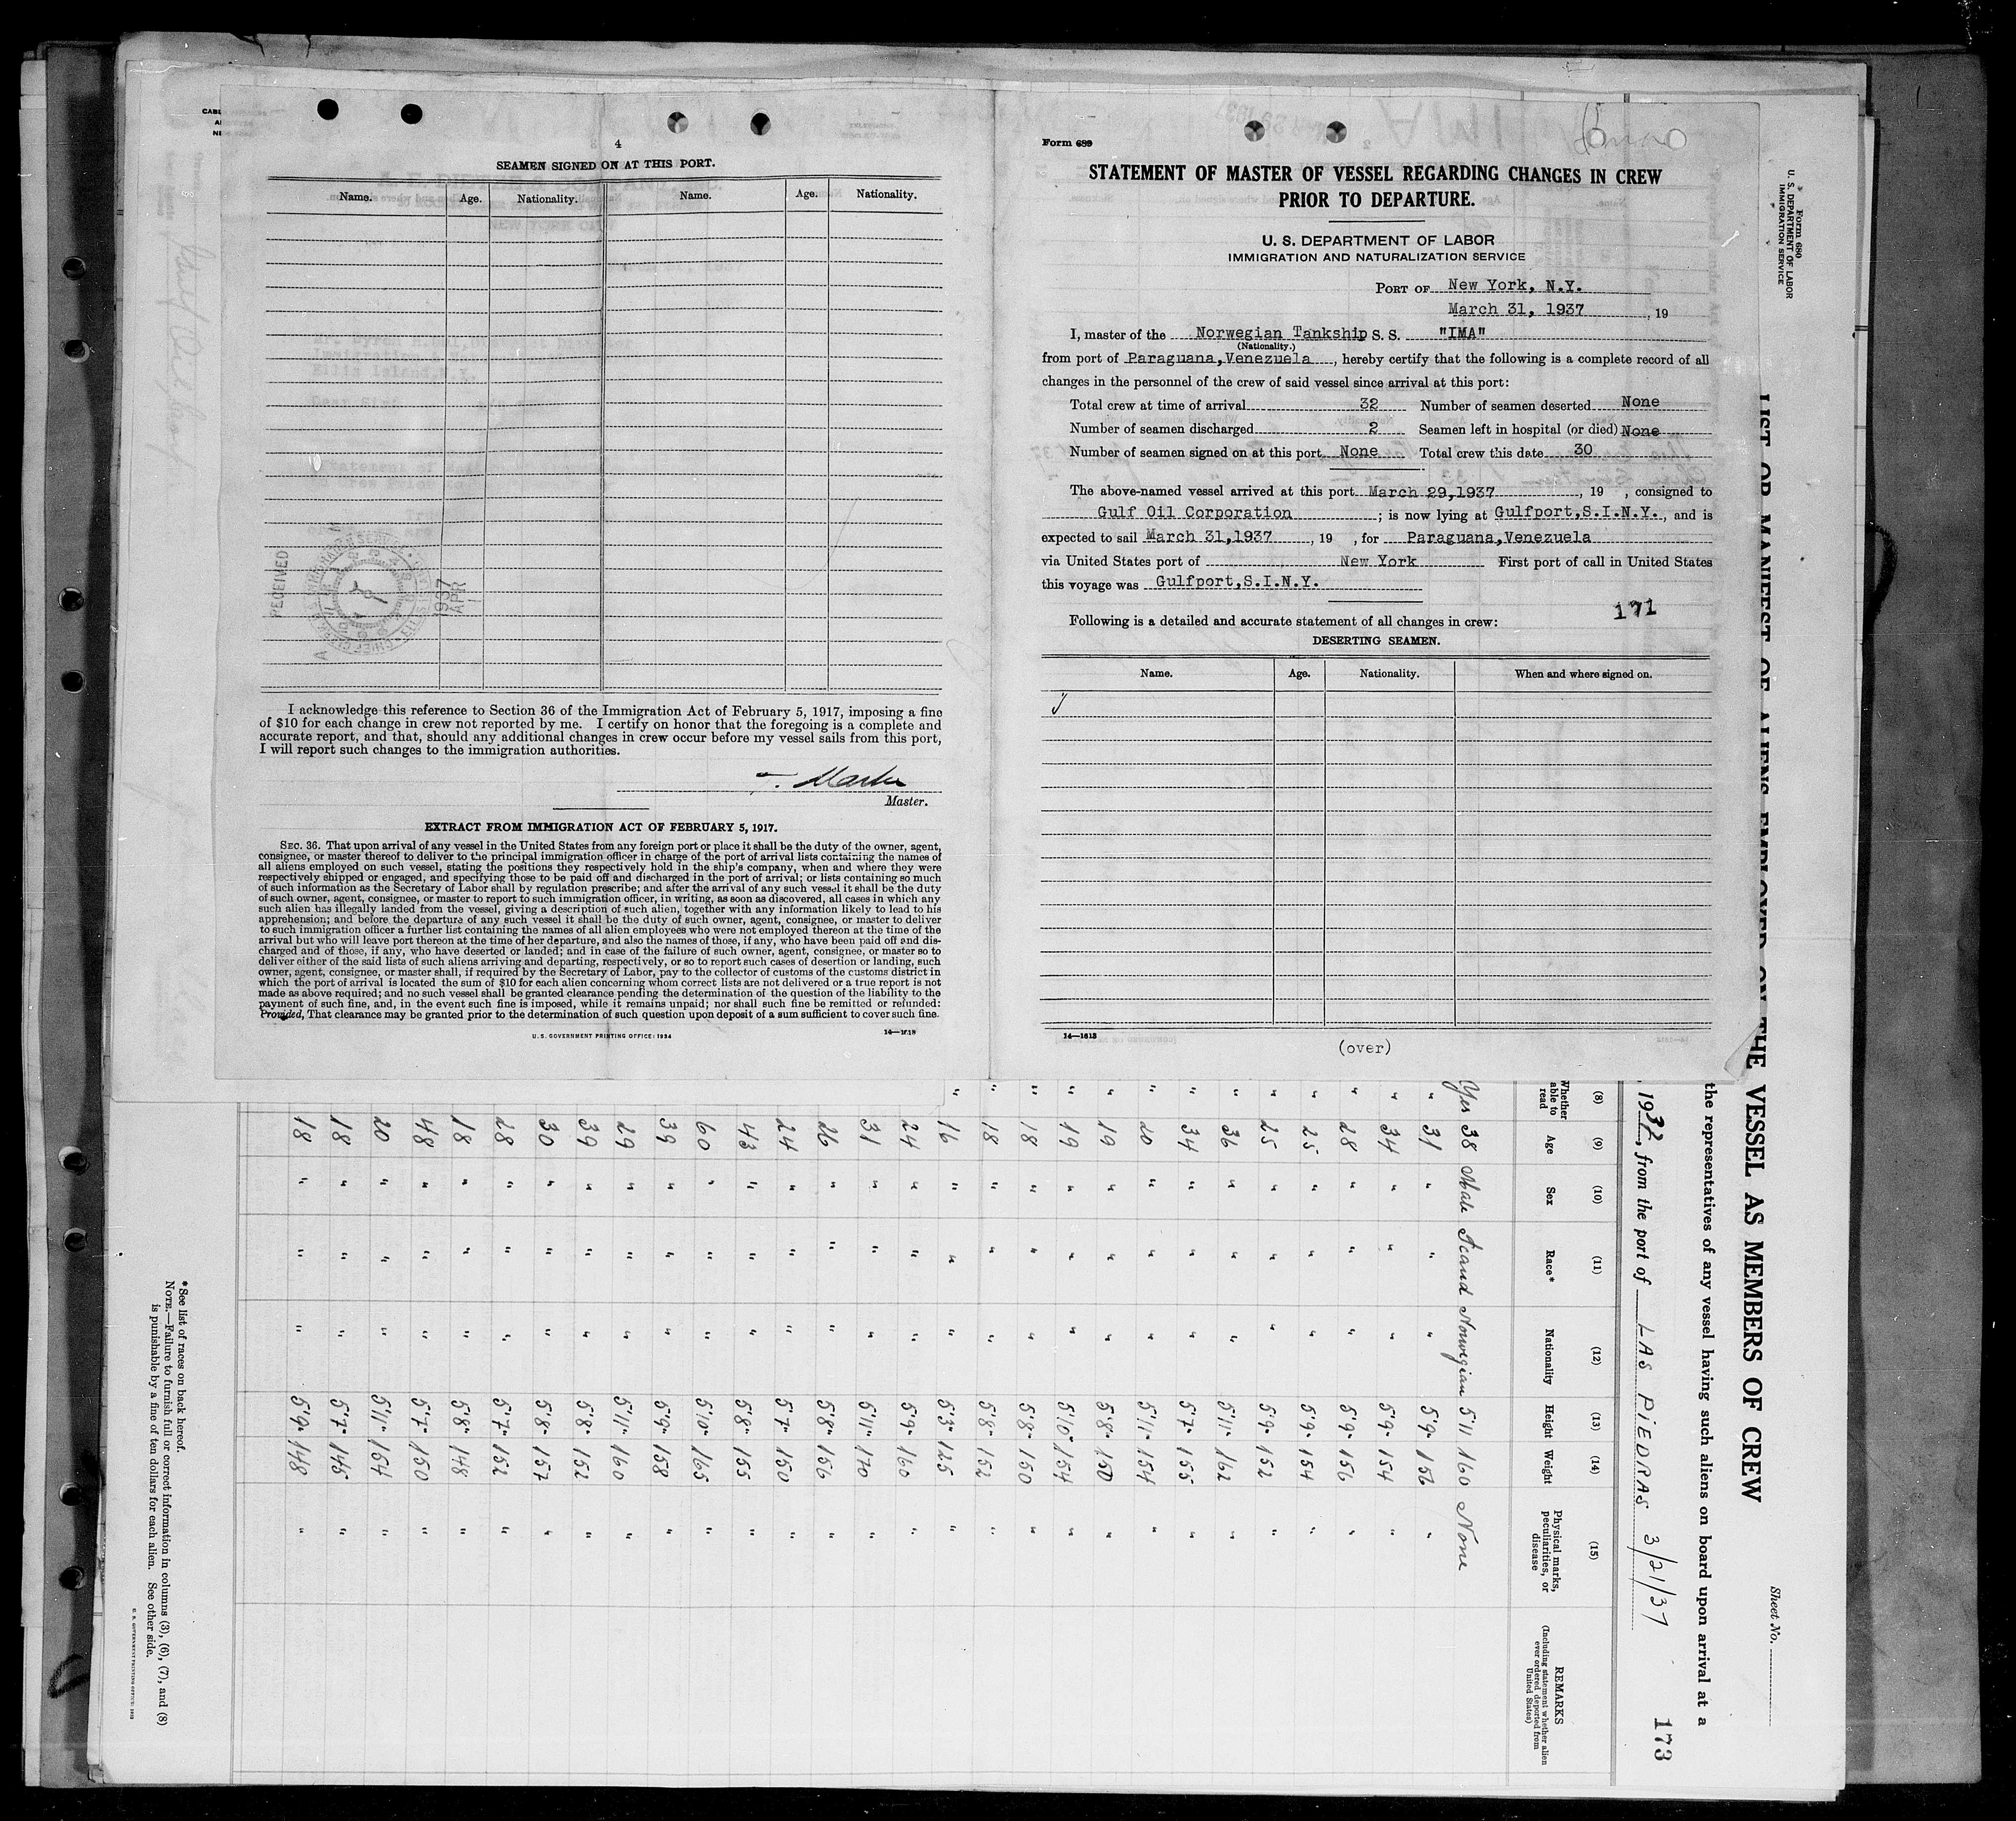 4
SEAMEN SIGNED ON AT THIS PORT.
Name. Age. Nationality. Name. Age. Nationality.
RECEIVED
1937
APR
I acknowledge this reference to Section 36 of the Immigration Act of February 5, 1917, imposing a fine
of $10 for each change in crew not reported by me. I certify on honor that the foregoing is a complete and
accurate report, and that, should any additional changes in crew occur before my vessel sails from this port,
I will report such changes to the immigration authorities.
Master.
EXTRACT FROM IMMIGRATION ACT OF FEBRUARY 5, 1917.
SEC. 36. That upon arrival of any vessel in the United States from any foreign port or place it shall be the duty of the owner, agent,
consignee, or master thereof to deliver to the principal immigration officer in charge of the port of arrival lists containing the names of
all aliens employed on such vessel, stating the positions they respectively hold in the ship's company, when and where they were
respectively shipped or engaged, and specifying those to be paid off and discharged in the port of arrival; or lists containing so much
of such information as the Secretary of Labor shall by regulation prescribe; and after the arrival of any such vessel it shall be the duty
of such owner, agent, consignee, or master to report to such immigration officer, in writing, as soon as discovered, all cases in which any
such alien has illegally landed from the vessel, giving a description of such alien, together with any information likely to lead to his
apprehension; and before the departure of any such vessel it shall be the duty of such owner, agent, consignee, or master to deliver
to such immigration officer a further list containing the names of all alien employees who were not employed thereon at the time of the
arrival but who will leave port thereon at the time of her departure, and also the names of those, if any, who have been paid off and dis-
charged and of those, if any, who have deserted or landed; and in case of the failure of such owner, agent, consignee, or master so to
deliver either of the said lists of such aliens arriving and departing, respectively, or so to report such cases of desertion or landing, such
owner, agent, consignee, or master shall, if required by the Secretary of Labor, pay to the collector of customs of the customs district in
which the port of arrival is located the sum of $10 for each alien concerning whom correct lists are not delivered or a true report is not
made as above required; and no such vessel shall be granted clearance pending the determination of the question of the liability to the
payment of such fine, and, in the event such fine is imposed, while it remains unpaid; nor shall such fine be remitted or refunded:
Provided, That clearance may be granted prior to the determination of such question upon deposit of a sum sufficient to cover such fine.
U. S. GOVERNMENT PRINTING OFFICE: 1934
Form 689
STATEMENT OF MASTER OF VESSEL REGARDING CHANGES IN CREW
PRIOR TO DEPARTURE.
U. S. DEPARTMENT OF LABOR
IMMIGRATION AND NATURALIZATION SERVICE
PORT OF New York, N.Y.
March 31, 1937, 19
I, master of the Norwegian Tankship S. S. "IMA"
(Nationality.)
from port of Paraguana,Venezuela, hereby certify that the following is a complete record of all
changes in the personnel of the crew of said vessel since arrival at this port:
Total crew at time of arrival 32 Number of seamen deserted None
Number of seamen discharged 2 Seamen left in hospital (or died) None
Number of seamen signed on at this port None Total crew this date 30
The above-named vessel arrived at this port March 29,1937, 19 , consigned to
Gulf Oil Corporation ; is now lying at Gulfport,S.I.N.Y., and is
expected to sail March 31,1937, 19 , for Paraguana,Venezuela
via United States port of New York First port of call in United States
this voyage was Gulfport,S.I.N.Y.
171
Following is a detailed and accurate statement of all changes in crew:
DESERTING SEAMEN.
Name. Age. Nationality. When and where signed on.
14—1613
(over)
Form 680
U. S. DEPARTMENT OF LABOR
IMMIGRATION SERVICE
Sheet No.
LIST OR MANIFEST OF ALIENS EMPLOYED ON THE VESSEL AS MEMBERS OF CREW
the representatives of any vessel having such aliens on board upon arrival at a
1937, from the port of LAS PIEDRAS 3/21/37
173
(8) (9) (10) (11) (12) (13) (14) (15)
Whether able to read Age Sex Race* Nationality Height Weight Physical marks, peculiarities, or disease REMARKS
(Including statement whether alien ever ordered deported from United States)
Yes 38 Male Scand Norwegian 5'11 160 None
" 31 " " " 5'9" 156 "
" 34 " " " 5'9" 154 "
" 28 " " " 5'9" 156 "
" 25 " " " 5'9" 154 "
" 25 " " " 5'9" 152 "
" 36 " " " 5'11" 162 "
" 34 " " " 5'7" 155 "
" 20 " " " 5'11" 154 "
" 19 " " " 5'8" 150 "
" 19 " " " 5'10" 154 "
" 18 " " " 5'8" 150 "
" 18 " " " 5'8" 152 "
" 16 " " " 5'3" 125 "
24 " " " 5'9" 160 "
31 " " " 5'11" 170 "
26 " " " 5'8" 156 "
24 " " " 5'7" 150 "
43 " " " 5'8" 155 "
60 " " " 5'10" 165 "
39 " " " 5'9" 158 "
29 " " " 5'11" 160 "
39 " " " 5'8" 152 "
30 " " " 5'8" 157 "
28 " " " 5'7" 152 "
18 " " " 5'8" 148 "
48 " " " 5'7" 150 "
20 " " " 5'11" 154 "
18 " " " 5'7" 145 "
18 " " " 5'9" 148 "
*See list of races on back hereof.
NOTE.—Failure to furnish full or correct information in columns (3), (6), (7), and (8)
is punishable by a fine of ten dollars for each alien. See other side.